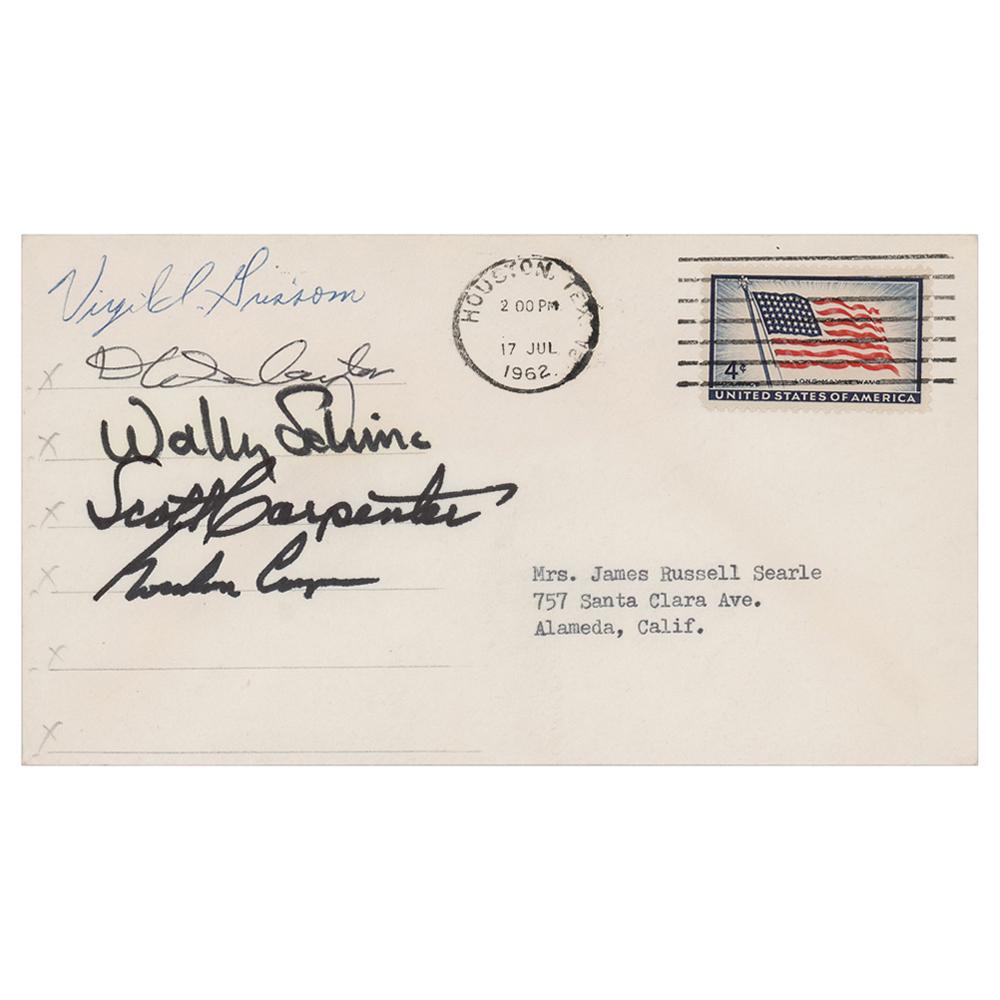 Virgil I. Grissom
HOUSTON, TEX.
2 00 PM
17 JUL
1962
4¢
LONG MAY IT WAVE
UNITED STATES OF AMERICA
x D K Slayton
x Wally Schirra
x Scott Carpenter
x Gordon Cooper
x
x
Mrs. James Russell Searle
757 Santa Clara Ave.
Alameda, Calif.